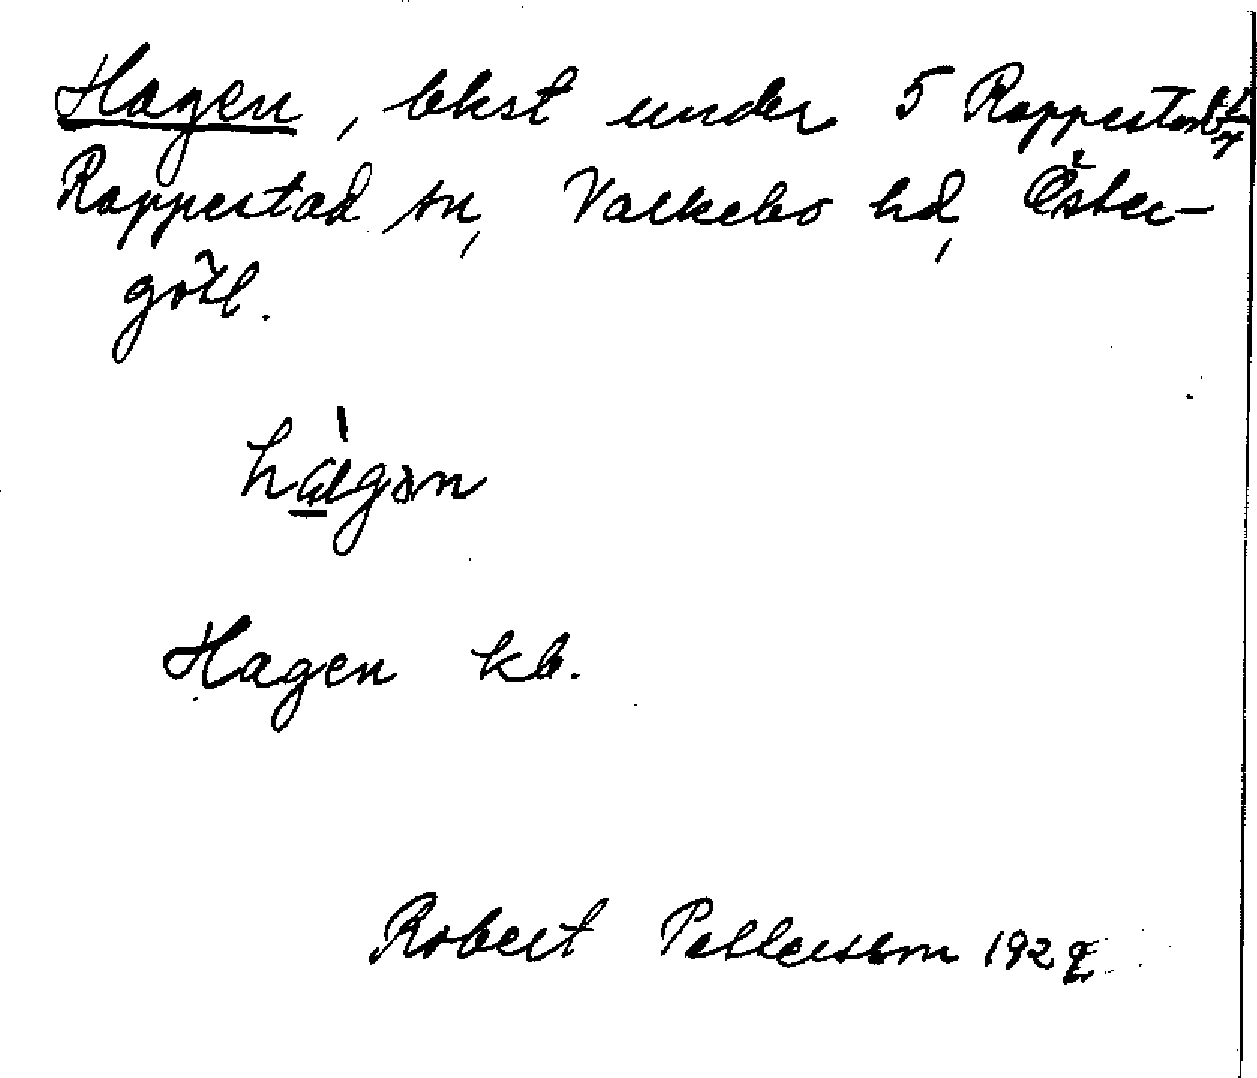 Hagen, lhst under 5 Rappestad
Rappestad sn, Valkebo hd, Öster-
götl.
hàgən
Hagen kb.
Robert Pettersson 192